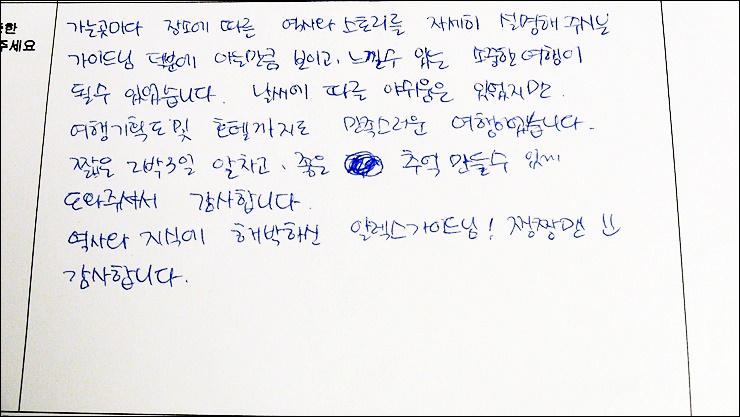 한
주세요
가는곳마다 장소에 따른 역사와 스토리를 자세히 설명해 주시는
가이드님 덕분에 아는만큼 보이고, 느낄수 있는 소중한 여행이
될수 있었습니다. 날씨에 따른 아쉬움은 있었지만.
여행기획도 및 호텔까지도 만족스러운 여행이었습니다.
짧은 2박3일 알차고, 좋은 추억 만들수 있게
도와주셔서 감사합니다.
역사와 지식에 해박하신 알렉스가이드님! 짱짱맨 !!
감사합니다.